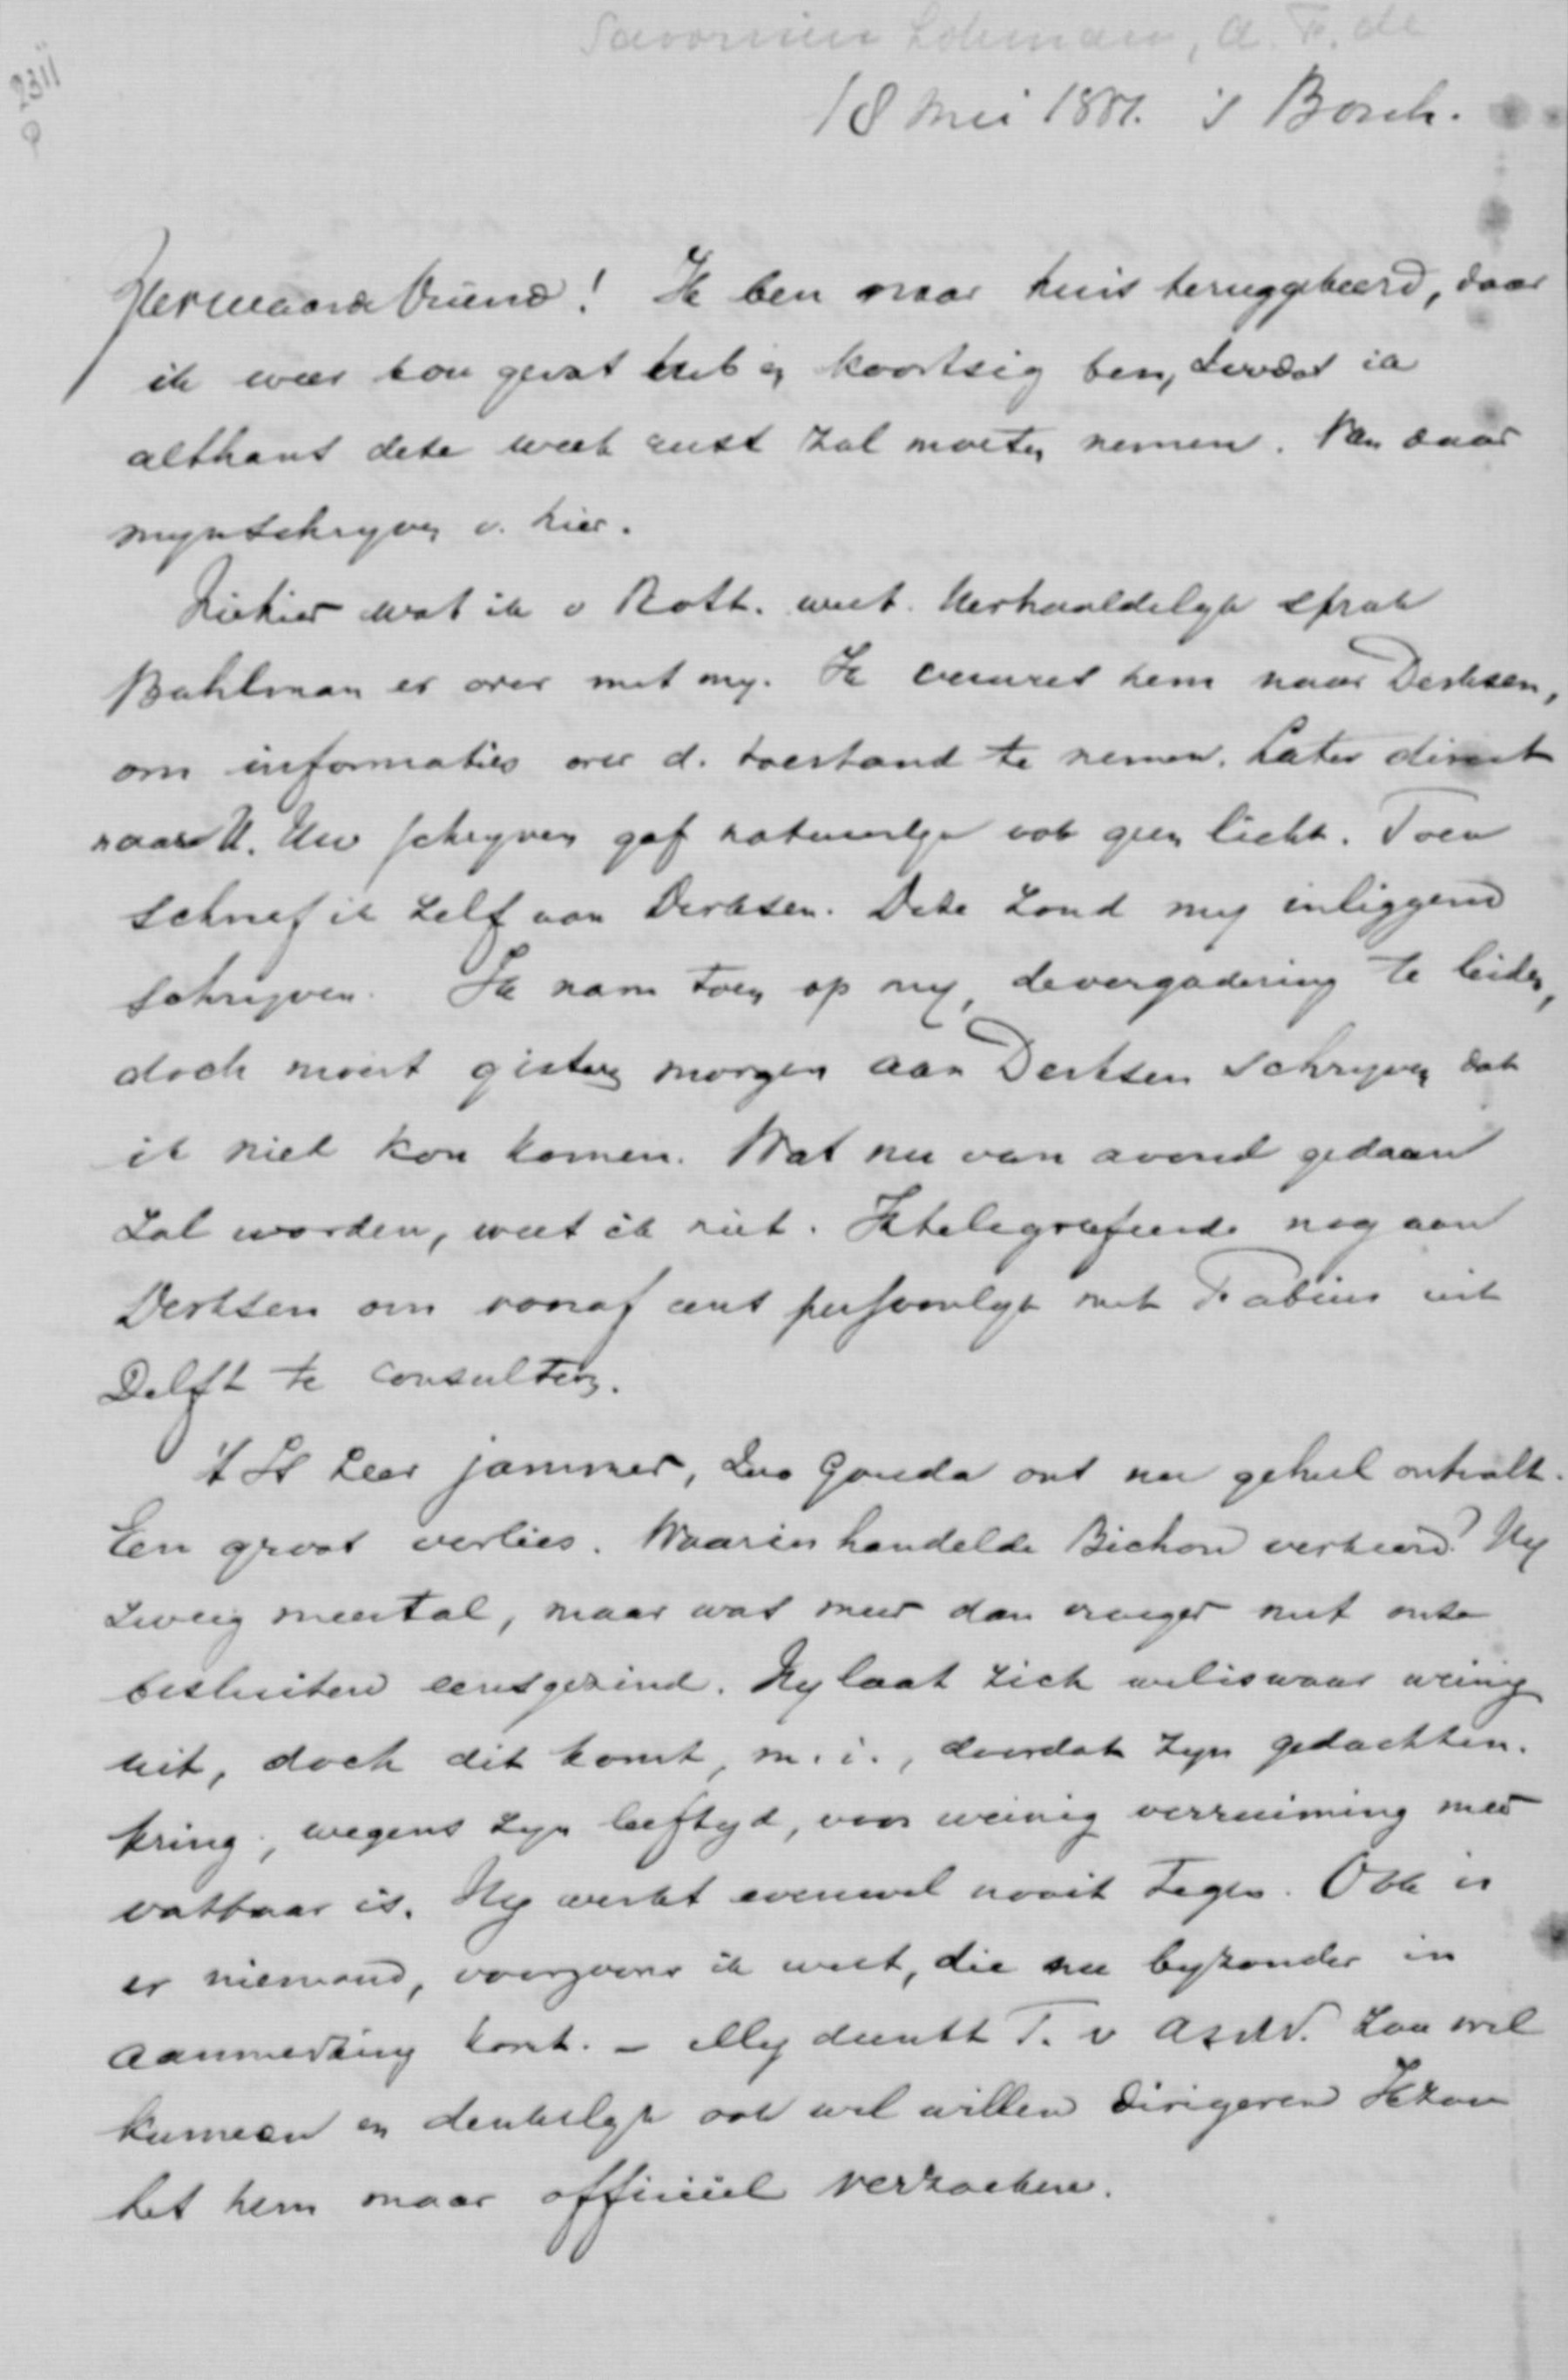 Savornin Lohman, A. F. de
2311
18 Mei 1881. 's Bosch.
Hermaarde Vriend! Ik ben naar huis teruggekeerd, daar
ik weer kou gevat heb en koortsig ben, zoodat ik
althans deze week rust zal moeten nemen. Van daar
myn schryven v. hier.
Ziehier wat ik v Rott. weet. Herhaaldelyk sprak
Bahlman er over met my. Ik verwees hem naar Derksen,
om informaties over d. toestand te nemen. Later direct
naar U. Uw schryven gaf natuurlyk ook geen licht. Toen
schreef ik zelf aan Derksen. Deze zond my inliggend
schryven. Ik nam toen op my, de vergadering te leiden,
doch moest gisteren morgen aan Derksen schryven dat
ik niet kon komen. Wat nu van avond gedaan
zal worden, weet ik niet. Ik telegrafeerde nog aan
Derksen om vooraf eens persoonlyk met Fabius uit
Delft te consulteren.
't Is zeer jammer, zoo Gouda ons nu geheel ontvalt.
Een groot verlies. Waarin handelde Bichon verkeerd? Hy
zweeg meestal, maar was meer dan vroeger met onze
besluiten eensgezind. Hy laat zich weliswaar weinig
uit, doch dit komt, m. i., doordat zyn gedachten.
kring, wegens zyn leeftyd, voor weinig verruiming meer
vatbaar is. Hy werkt evenwel nooit tegen. Ook is
er niemand, voorzoover ik weet, die nu byzonder in
aanmerking komt. - My dunkt T. v Asch v. zou wel
kunnen en denkelyk ook wel willen dirigeren Ik zou
het hem maar officieel verzoeken.